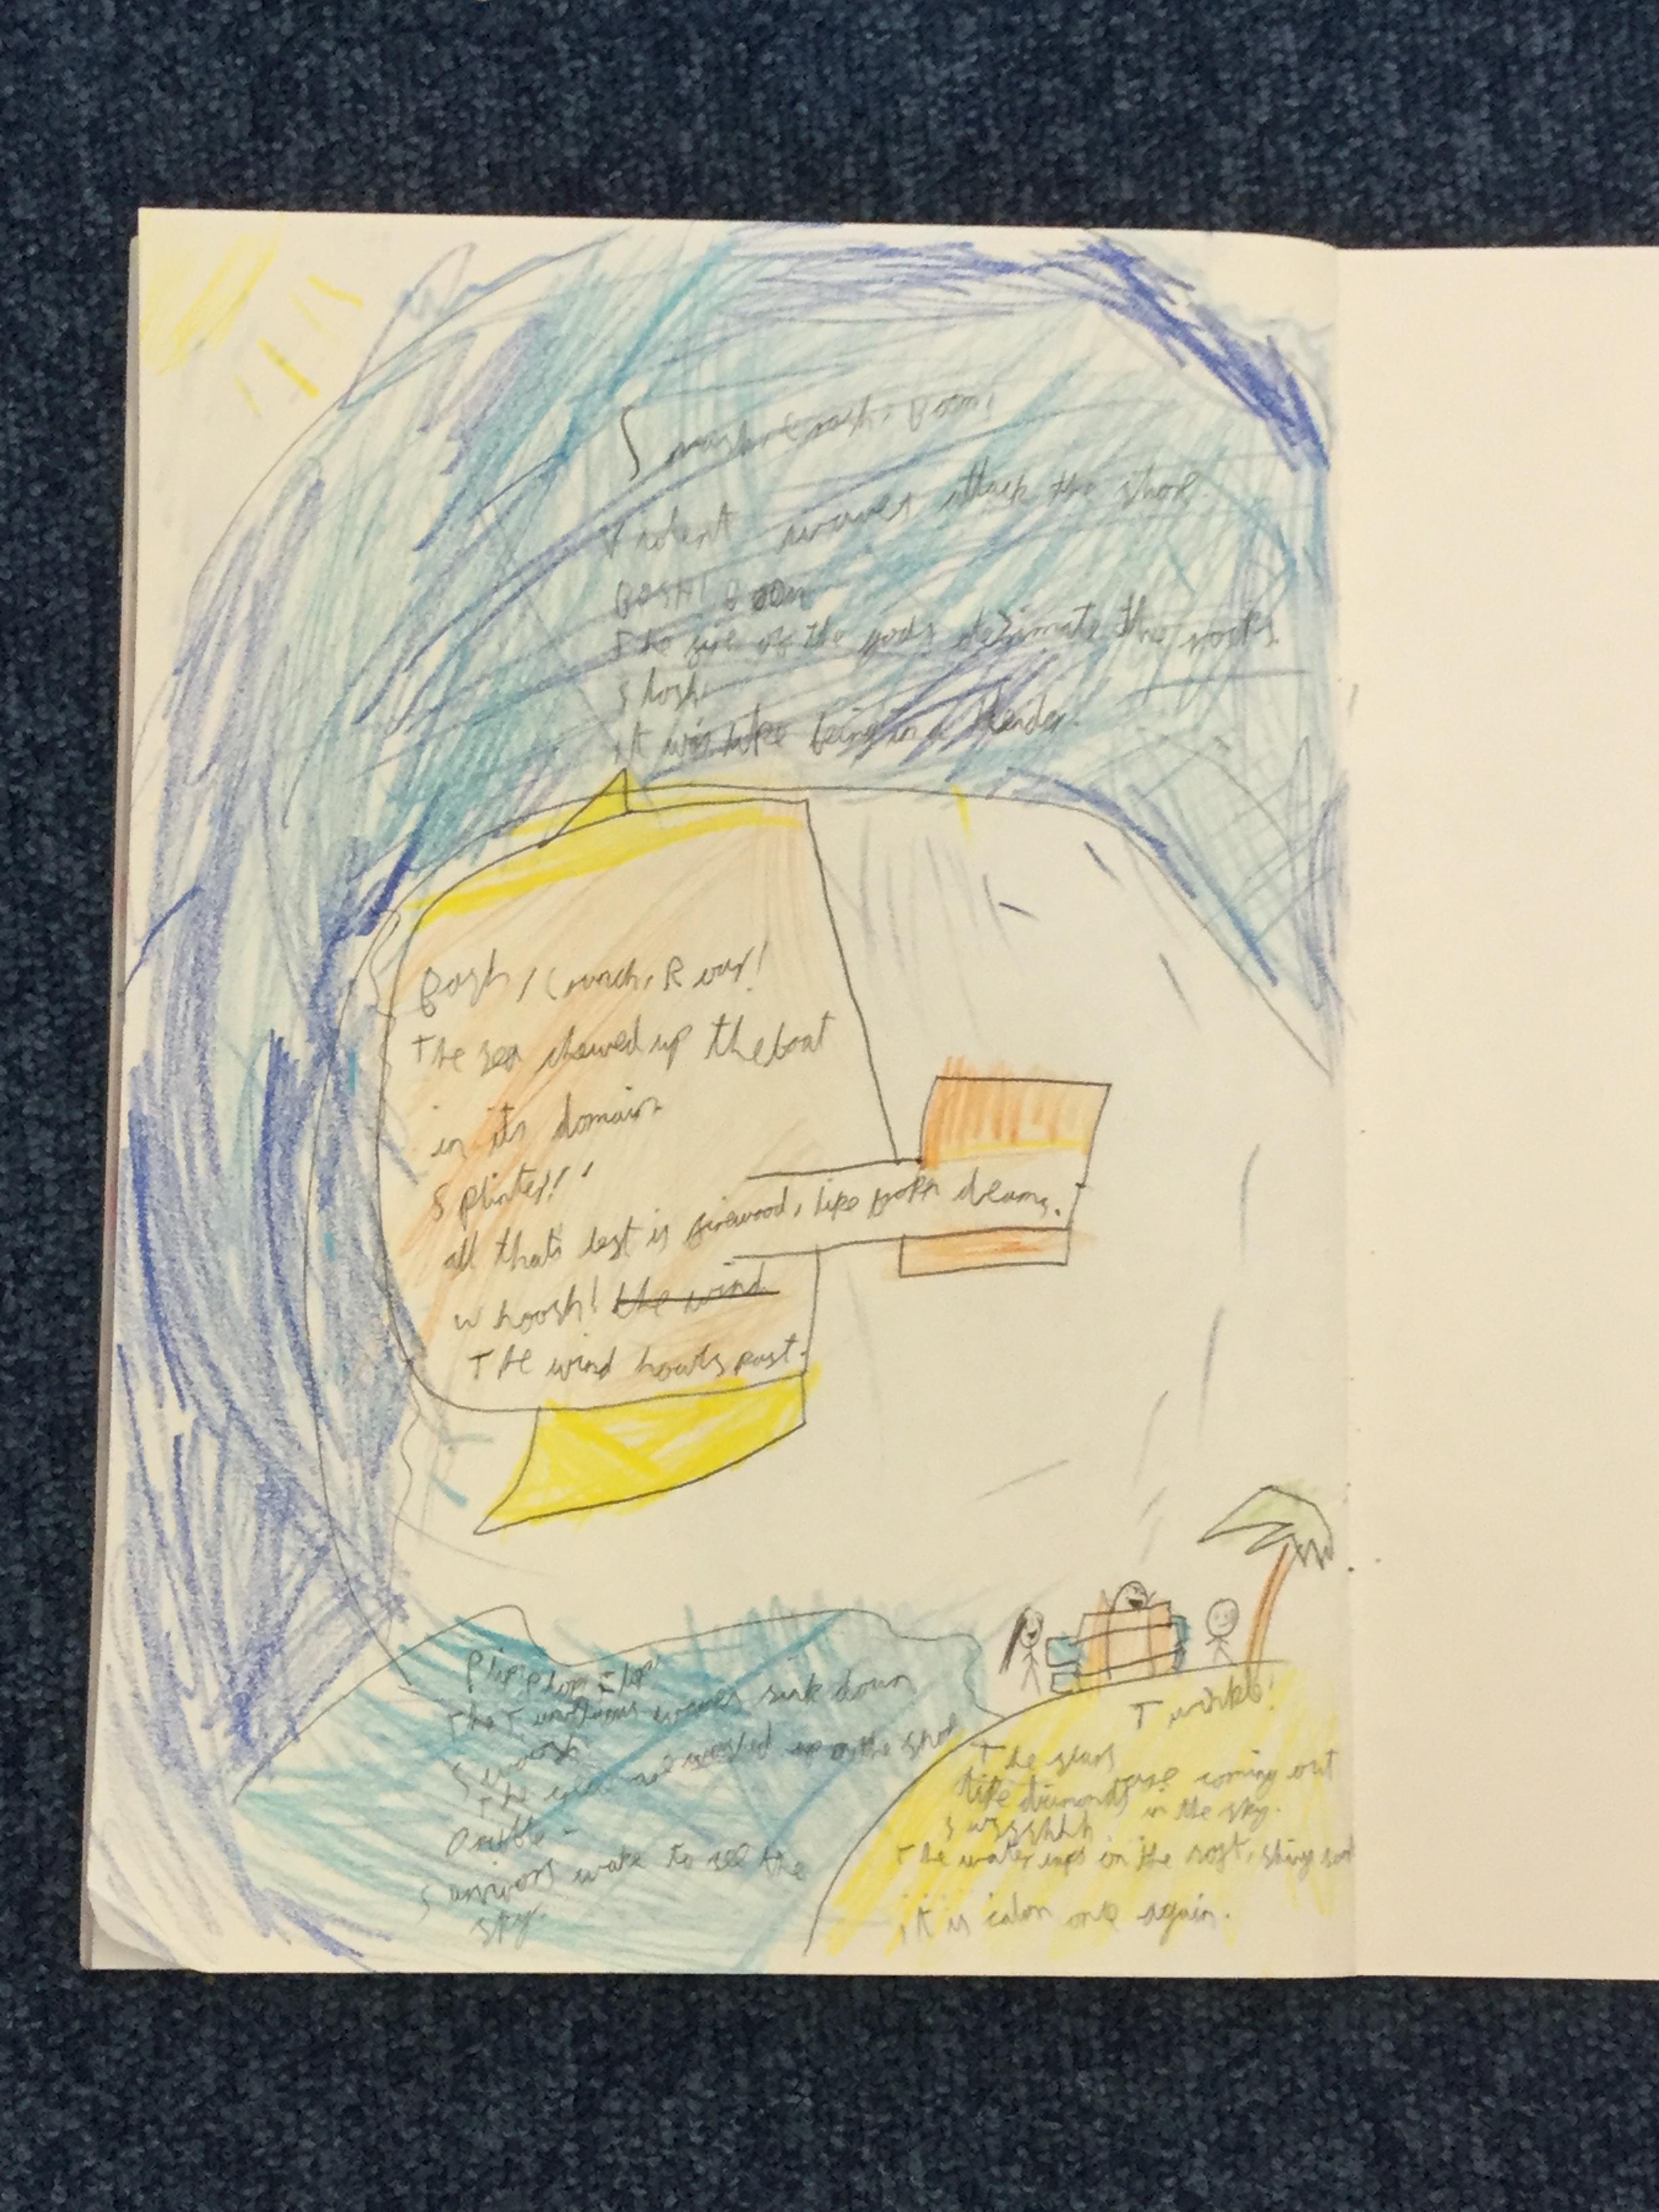 Smash! Crash! Boom!
Violent waves attack the shore.
BOSH! BOOM
The fire of the gods desimate the rocks.
Slosh
it was like being in a blender.
Bash! Crunch, Roar!
The sea chewed up the boat
in its domain
Splinter!!
all thats left is firewood, like broken dreams.
whoosh! the wind
The wind howls past.
Plip plop Flop!
The waves sink down
Swoosh
The crew washed up on the shore
Survivors wake to see the
sky.
Twinkle!
The stars are coming out
like diamonds in the sky.
Swssshhh.
The water laps on the soft, shiny sand
it is calm once again.